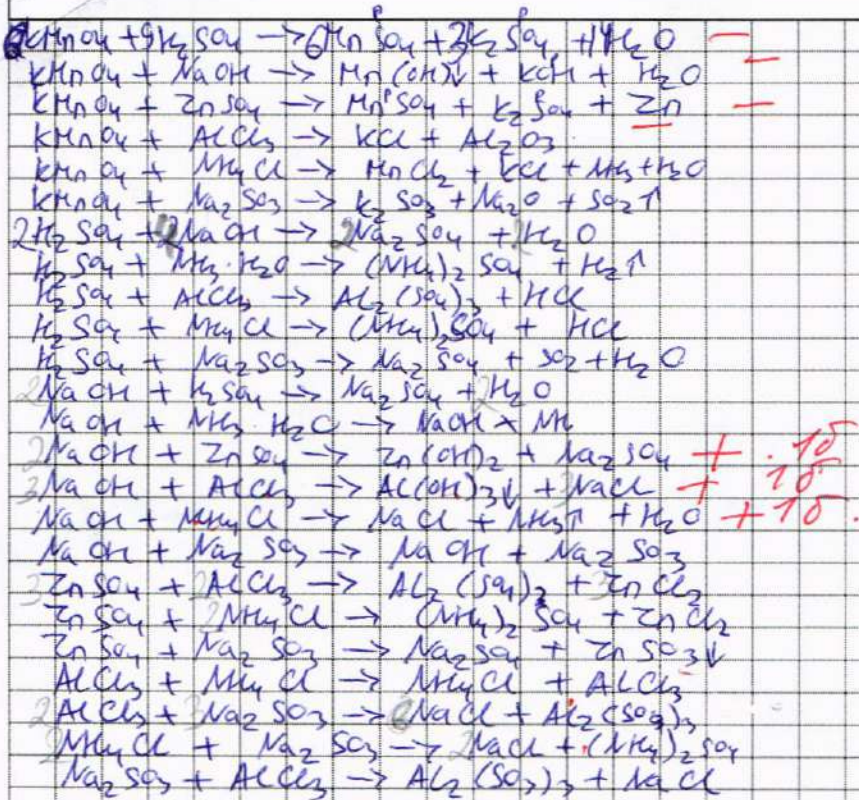 6KMnO4 + 9H2SO4 → 6MnSO4 + 3K2SO4 + 14H2O −
KMnO4 + NaOH → Mn(OH)↓ + KOH + H2O −
KMnO4 + ZnSO4 → MnSO4 + K2SO4 + Zn −
KMnO4 + AlCl3 → KCl + Al2O3
KMnO4 + NH4Cl → MnCl2 + KCl + NH3 + H2O
KMnO4 + Na2SO3 → K2SO3 + Na2O + SO2↑
2H2SO4 + 4NaOH → 2Na2SO4 + 2H2O
H2SO4 + NH3·H2O → (NH4)2SO4 + H2↑
H2SO4 + AlCl3 → Al2(SO4)3 + HCl
H2SO4 + NH4Cl → (NH4)2SO4 + HCl
H2SO4 + Na2SO3 → Na2SO4 + SO2 + H2O
2NaOH + H2SO4 → Na2SO4 + 2H2O
NaOH + NH3·H2O → NaOH × NH
2NaOH + ZnSO4 → Zn(OH)2 + Na2SO4 + 1б
3NaOH + AlCl3 → Al(OH)3↓ + 3NaCl + 1б
NaOH + NH4Cl → NaCl + NH3↑ + H2O + 1б.
NaOH + Na2SO3 → NaOH + Na2SO3
3ZnSO4 + 2AlCl3 → Al2(SO4)2 + 3ZnCl2
ZnSO4 + 2NH4Cl → (NH4)2SO4 + ZnCl2
ZnSO4 + Na2SO3 → Na2SO4 + ZnSO3↓
AlCl3 + NH4Cl → NH4Cl + AlCl3
2AlCl3 + 3Na2SO3 → 6NaCl + Al2(SO3)3
2NH4Cl + Na2SO3 → 2NaCl + (NH4)2SO4
Na2SO3 + AlCl3 → Al2(SO3)3 + NaCl